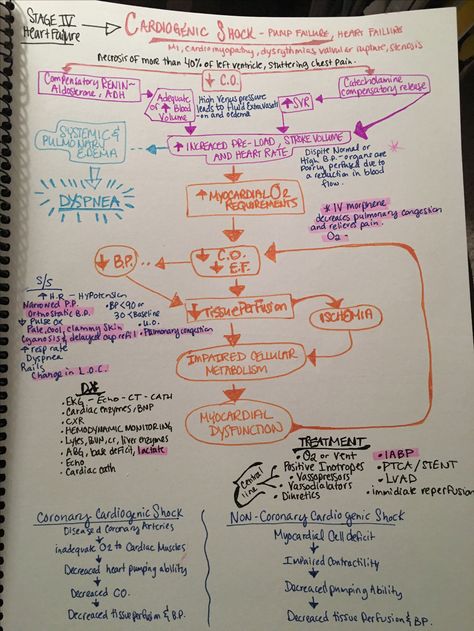 STAGE IV
Heart Failure
CARDIOGENIC SHOCK - PUMP FAILURE, HEART FAILURE
MI, cardiomyopathy, dysrythmias, valvular rupture, stenosis
necrosis of more than 40% of left ventricle, stuttering chest pain.
Compensatory RENIN~
Aldosterone, ADH
↓ C.O.
Catecholamine
compensatory release
Adequate
or ↑ Blood
Volume
High Venus pressure
leads to Fluid Extravasati
-on and oedema
↑ SVR
SYSTEMIC &
PULMONARY
EDEMA
↑ INCREASED PRE-LOAD, STROKE VOLUME
AND HEART RATE
Dispite Normal or
High B.P. - organs are
Poorly perfused due to
a reduction in blood
flow.
DYSPNEA
↑ MYOCARDIAL O2
REQUIREMENTS
* IV morphene
decreases pulmonary congestion
and relieves pain.
O2 -
↓ B.P.
↓ C.O.
E.F.
S/S
↑ H.R - HYPOtension
Narrowed P.P.
Orthostatic B.P.
↓ Pulse Ox
Pale, cool, clammy skin
Cyanosis & delayed cap refill
↑ resp rate
Dyspnea
Rails
Change in L.O.C.
• BP < 90 or
30 < Baseline
• ↓ U.O.
• Pulmonary congestion
↓ Tissue Perfusion
ISCHEMIA
IMPAIRED CELLULAR
METABOLISM
MYOCARDIAL
DYSFUNCTION
DX
• EKG - Echo - CT - CATH
• Cardiac enzymes, BNP
• CXR
• HEMODYNAMIC MONITORING
• Lytes, BUN, cr, liver enzymes
• ABG, base deficit, lactate
• Echo
• Cardiac cath
TREATMENT
• O2 or vent
Positive Inotropes
• Vasopressors
• Vasodialators
• Diuretics
central
line
• IABP
• PTCA/STENT
• LVAD
• immidiate reperfusion
Coronary Cardiogenic Shock
Diseased Coronary Arteries
inadequate O2 to Cardiac Muscles
Decreased heart pumping ability
Decreased CO.
Decreased tissue perfusion & B.P.
Non-Coronary Cardiogenic Shock
Myocardial Cell deficit
Impaired Contractility
Decreased Pumping Ability
Decreased tissue Perfusion & BP.